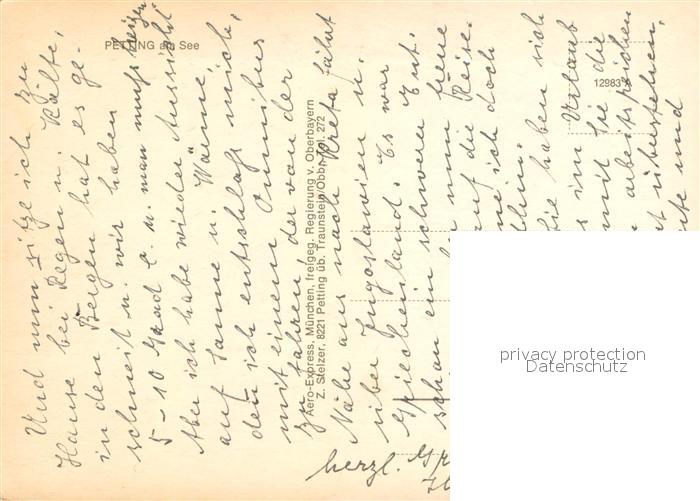 PETTING am See
12983 A
Aero-Express, München, freigeg. Regierung v. Oberbayern
Z. Stelzer, 8221 Petting üb. Traunstein/Obb. Tel. 272
Und nun sitze ich zu
Hause bei Regen u. Kälte,
in den Bergen hat es ge-
schneit u. wir haben
5-10 Grad C. u. man muß heizen
Aber ich habe wieder Aussicht
auf Sonne u. Wärme,
denn ich entschloß mich,
mit einem Omnibus
zu fahren, der von der
Nähe aus nach Kreta fährt
über Jugoslawien u.
Griechenland. Es war
schon ein schwerer Ent-
nun freue
auf die Reise.
ich doch
Sie haben sich
im Urlaub
mit Sie die
arbeitsreichen
überstehen.
und
herzl.
privacy protection
Datenschutz